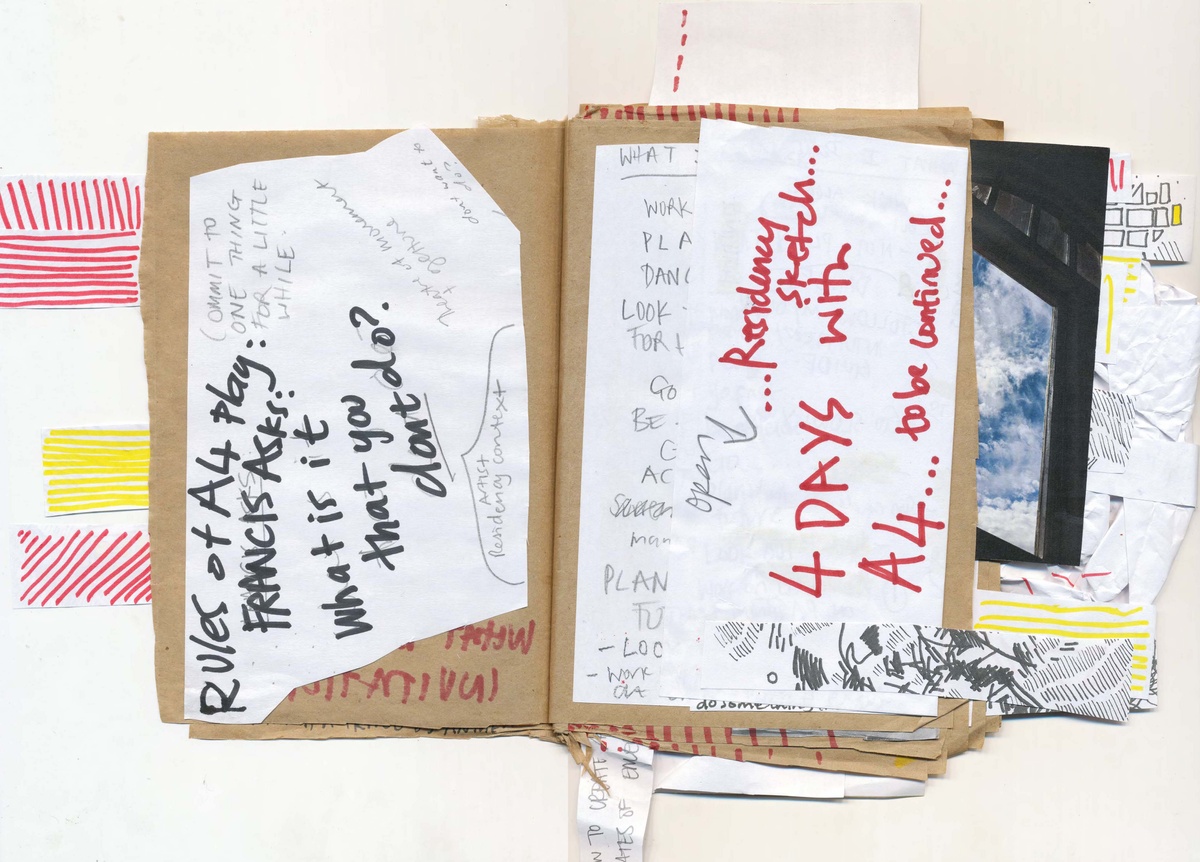 RULES of A4 Play:
FRANCIS ASKS:
What is it
that you
dont do?
(OMMIT TO
ONE THING
FOR A LITTLE
WHILE.
dont want to
do?
Artist
Residency context
INVITATION
WHAT
WORK
PLA
DANC
LOOK
FOR
GO
BE.
C
AC
man
PLAN
TU
- LOC
- WORK
open
...Residency
sketch...
4 DAYS with
A4... to be continued...
do something
W TO UPDATE
ATES OF ENE